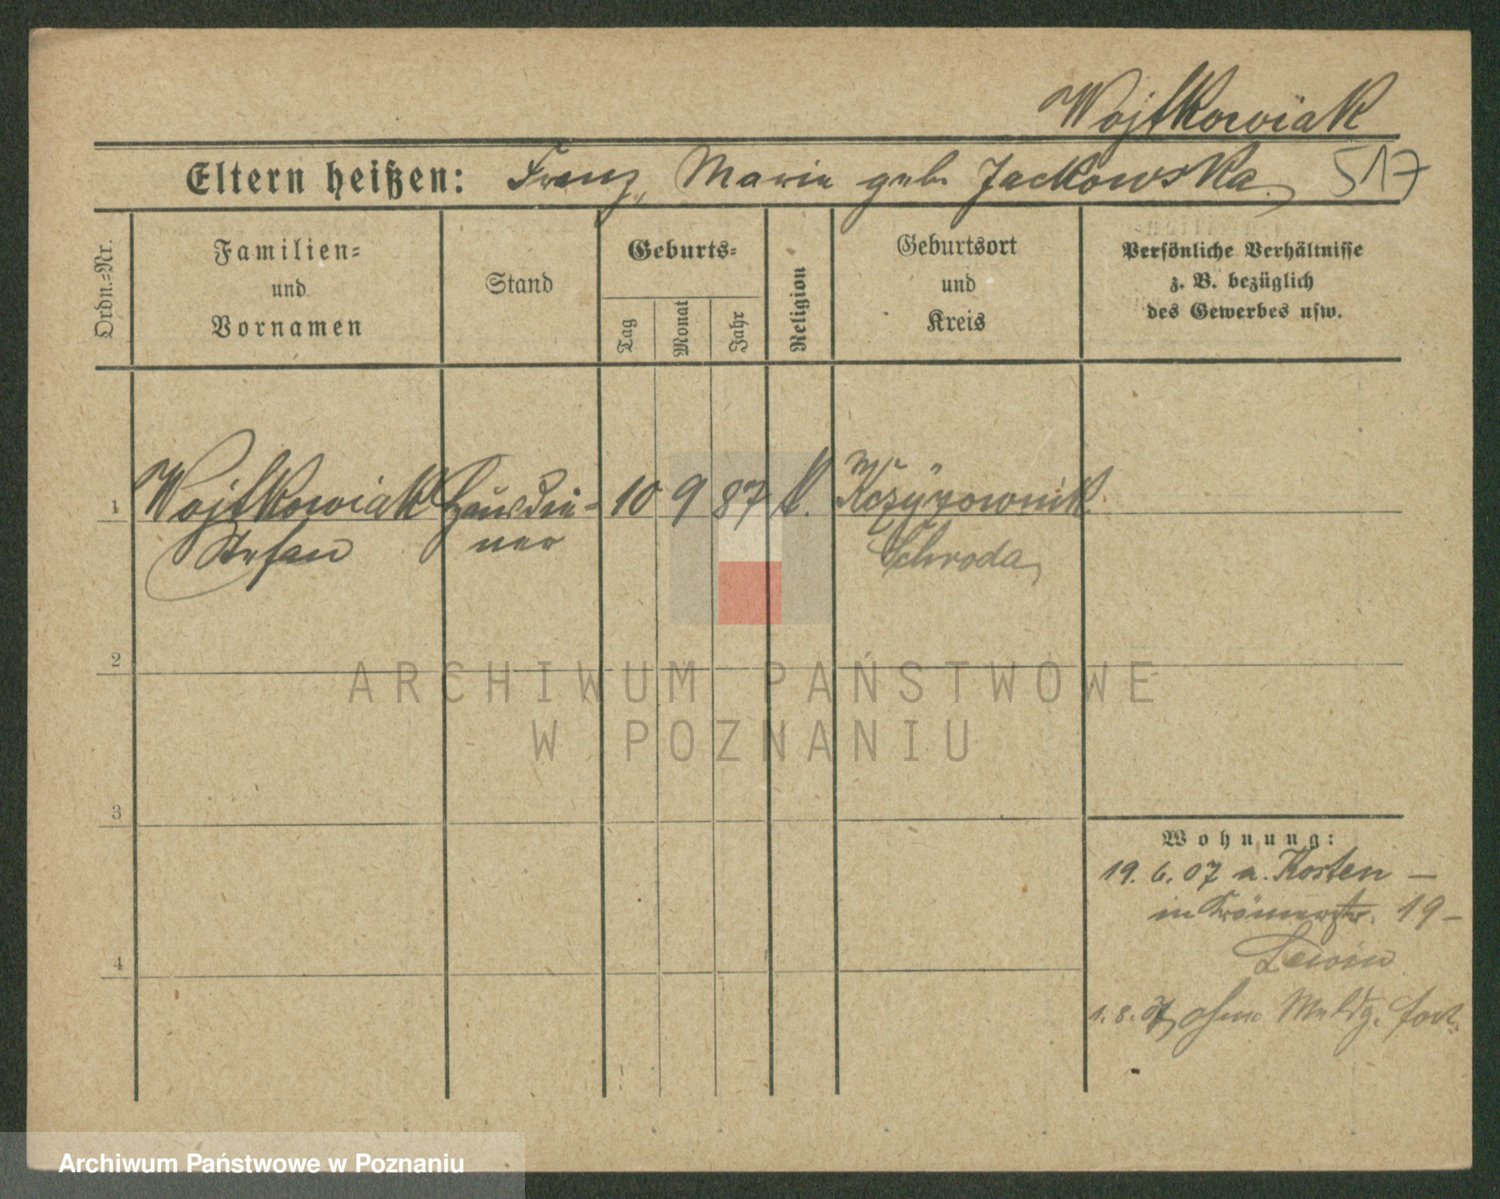 Wojtkowiak
Eltern heißen: Franz, Marie geb. Jackowska. 517
Ordn.-Nr.
Familien-
und
Vornamen
Stand
Geburts-
Tag
Monat
Jahr
Religion
Geburtsort
und
Kreis
Persönliche Verhältnisse
z. B. bezüglich
des Gewerbes usw.
1 Wojtkowiak Hausdie- 10 9 87 k.
Stefan ner Schroda
2
3
4
Wohnung:
19. 6. 07 a. Kosten —
in Krämerstr. 19 —
Lewin
1. 8. 07 ohne Meldg. fort.
ARCHIWUM PAŃSTWOWE
W POZNANIU
Archiwum Państwowe w Poznaniu